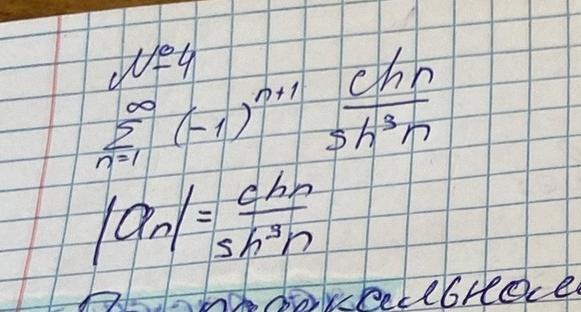 №4
∞
∑ (-1)^{n+1} chn / sh³n
n=1
|aₙ| = chn / sh³n